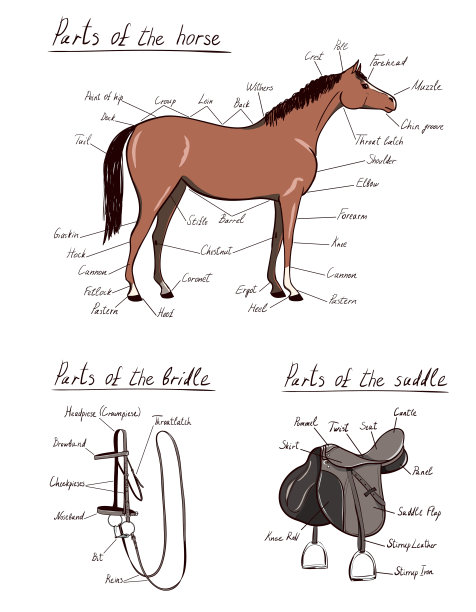 Parts of the horse
Poll
Crest
Forehead
Withers
Muzzle
Point of hip
Croup
Loin
Back
Dock
Chin groove
Tail
Throat latch
Shoulder
Elbow
Stifle
Barrel
Forearm
Gaskin
Knee
Hock
Chestnut
Cannon
Cannon
Coronet
Fetlock
Ergot
Pastern
Hoof
Heel
Pastern
Parts of the bridle
Parts of the saddle
Headpiese (Crownpiese)
Throatlatch
Browband
Cheekpieses
Noseband
Bit
Reins
Cantle
Pommel
Twist
Seat
Skirt
Panel
Saddle Flap
Knee Roll
Stirrup Leather
Stirrup Iron